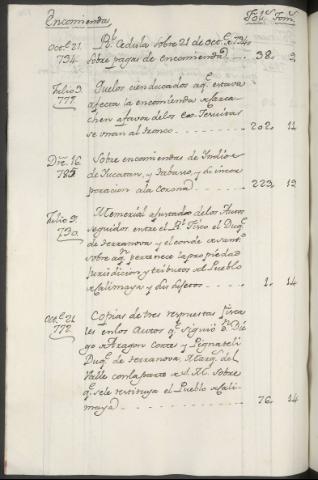 Encomienda Fol.s Tom.s
Oct.e 21. Rl. Cedula sobre 21 de oct.e 734
734. sobre pagas de encomienda 38. 9
Julio 3. Quelos cien ducados aq.e estava
777. afecta la encomienda
chen afavor delos
se unan al tronco 202. 11
Dre. 16. Sobre encomiendas de Indios
785 de Yucatan, y Tabasco, y su incor
poracion ala corona 223. 13
Julio 9. Memorial ajustado delos Autos
790. seguidos entre el Rl. Fisco el Duq.e
de Terranova y el conde
sobre aq.n pertenece la propiedad
Jurisdicion y tributos del Pueblo
de Calimaya y sus sujetos 1. 14
Oct.e 21. Copias de tres repuestas fisca
772. les enlos Autos q.e siguió Dn. Die
go de Aragon Cortes y Pignateli
Duq.e de terranova, Marq.s del
Valle conla parte de S. M. sobre
q.e sele restituya el Pueblo de Cali
maya 76. 14